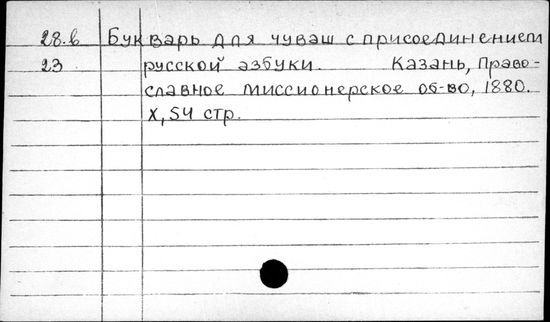 28.в Букварь для чуваш с присоединением
23 русской азбуки. Казань, Право-
славное миссионерское об-во, 1880.
X, 54 стр.